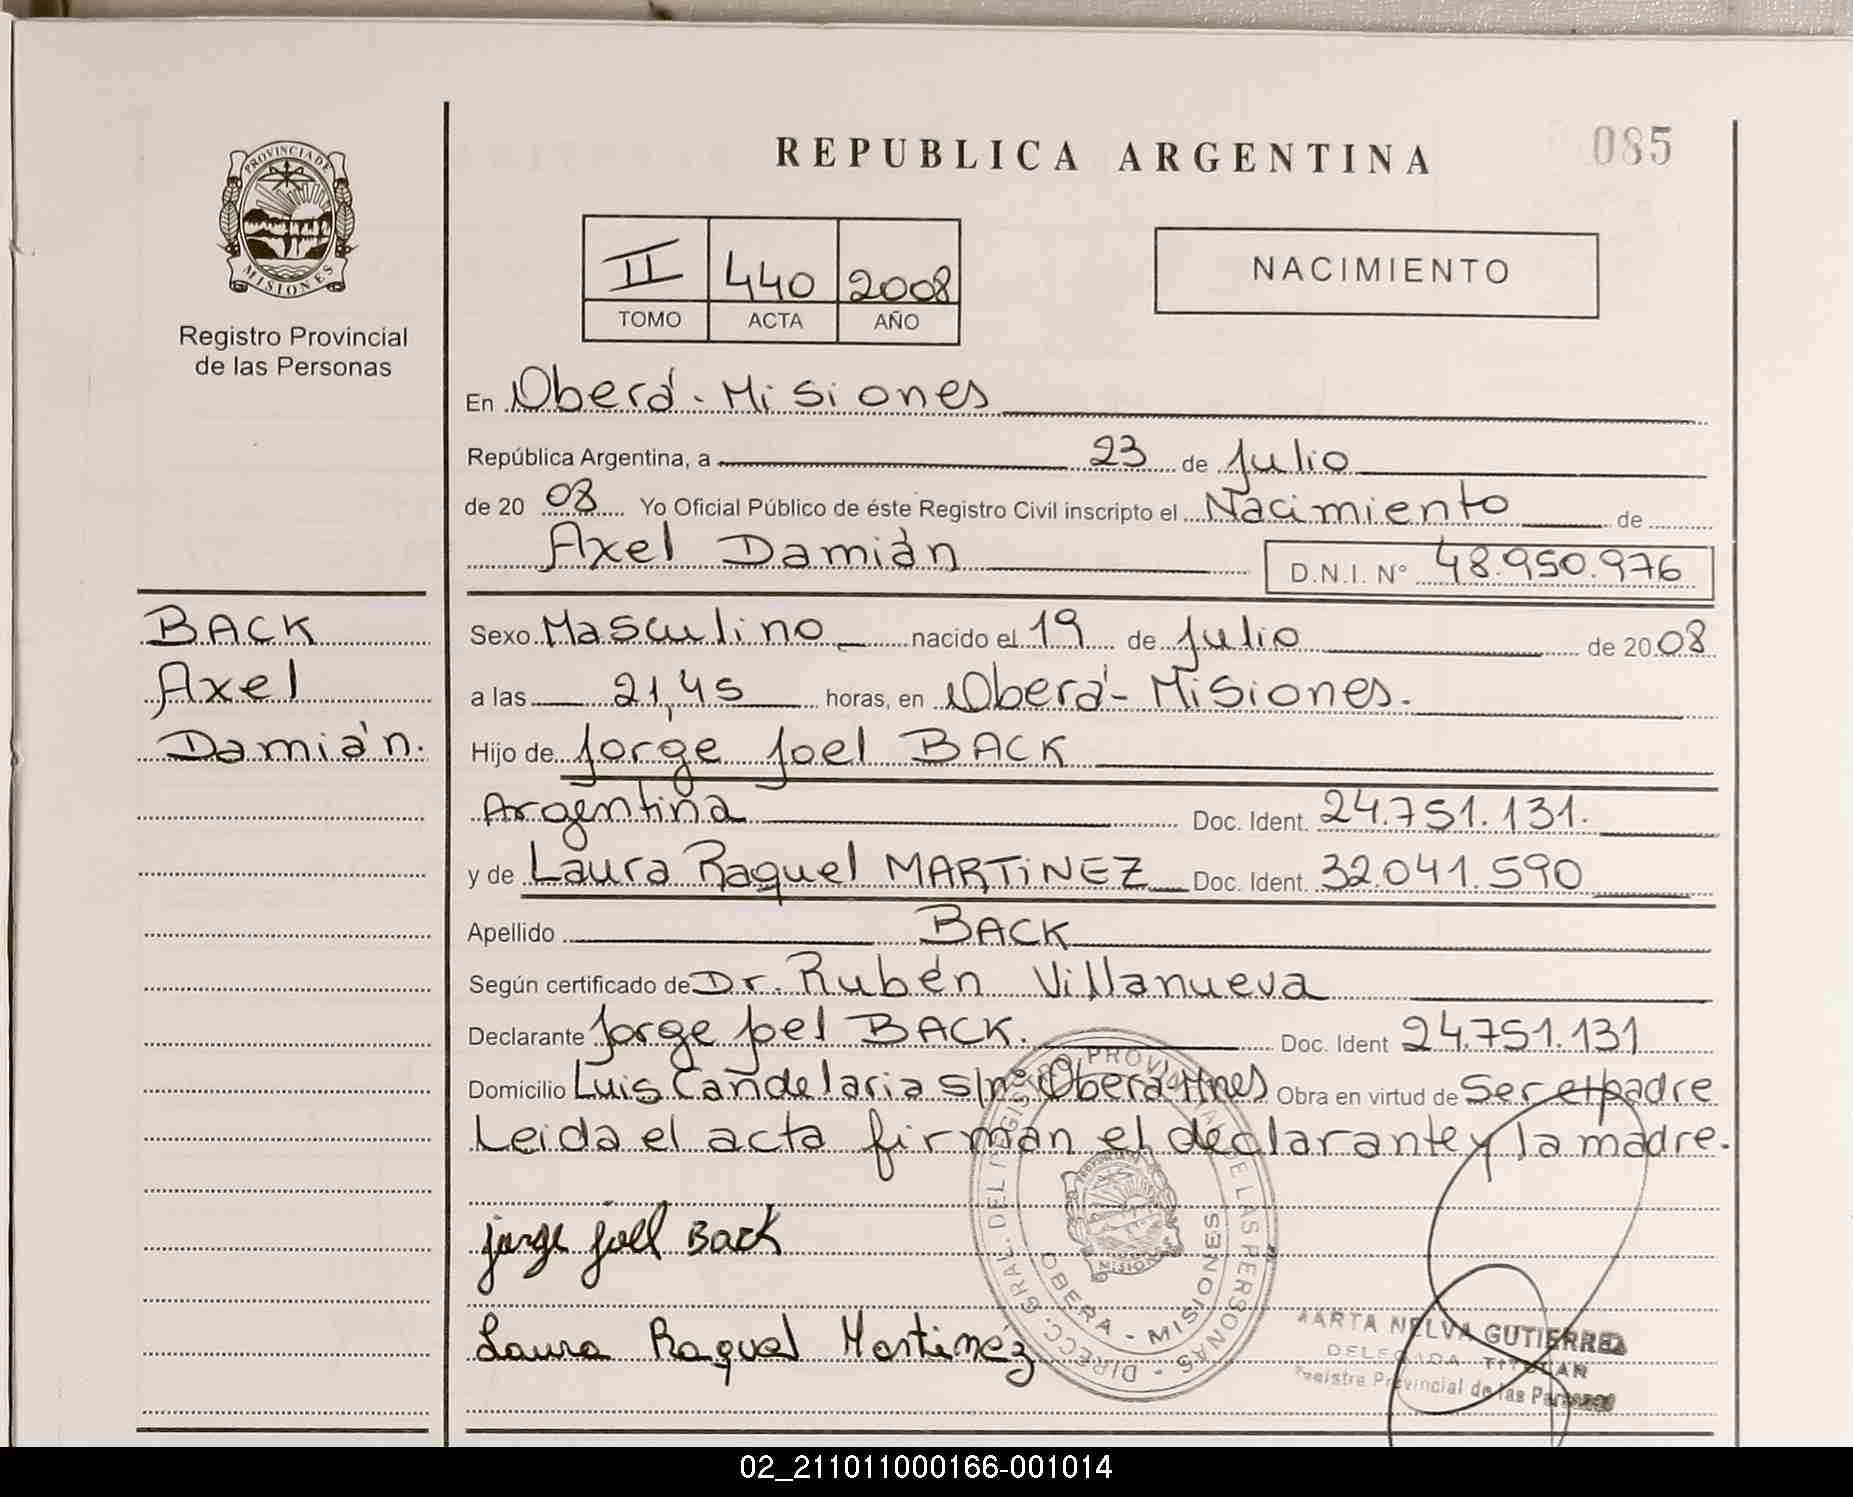 REPUBLICA ARGENTINA
085
PROVINCIA DE
MISIONES
Registro Provincial
de las Personas
II 440 2008
TOMO ACTA AÑO
NACIMIENTO
En Oberá - Misiones
República Argentina, a 23 de Julio
de 20 08 Yo Oficial Público de éste Registro Civil inscripto el Nacimiento de
Axel Damián D.N.I. Nº 48.950.976
BACK
Axel
Damián.
Sexo Masculino nacido el 19 de Julio de 2008
a las 21,45 horas, en Oberá - Misiones.
Hijo de Jorge Joel BACK
Argentina Doc. Ident. 24.751.131.
y de Laura Raquel MARTINEZ Doc. Ident. 32.041.590
Apellido BACK
Según certificado de Dr. Rubén Villanueva
Declarante Jorge Joel BACK. Doc. Ident 24.751.131
Domicilio Luis Candelaria s/nº Oberá-Mnes Obra en virtud de Ser el padre
Leida el acta firman el declarante y la madre.
jorge joel Back
Laura Raquel Martinez
DIRECC. GRAL. DEL REGISTRO PROVINCIAL DE LAS PERSONAS
OBERA - MISIONES
MARTA NELVA GUTIERREZ
DELEGADA TITULAR
Registro Provincial de las Personas
02_211011000166-001014